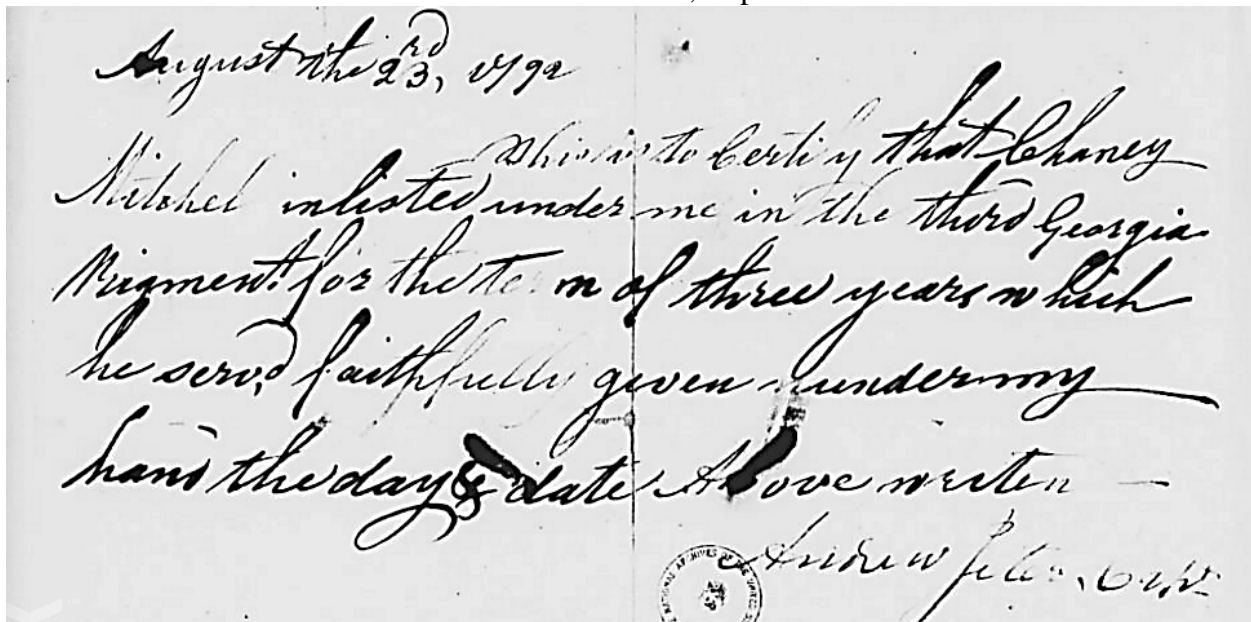 August the 23rd, 1792
This is to Certify that Chaney
Mitchel inlisted under me in the third Georgia
Rigment for the term of three years which
he serv,d faithfully given under my
hand the day & date Above writen
Andrew
NATIONAL ARCHIVES OF THE UNITED